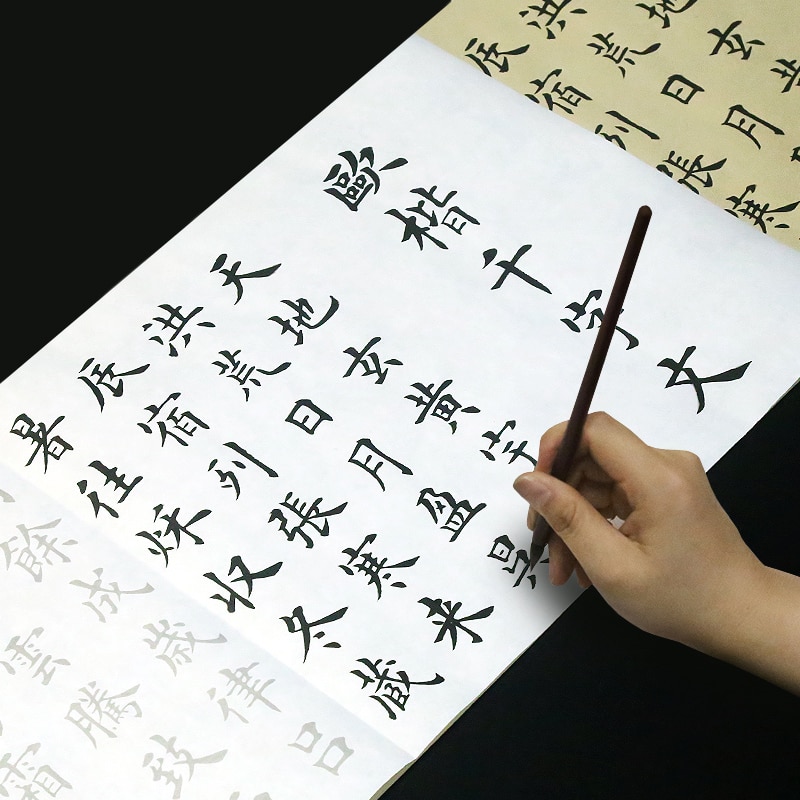 地玄黄
洪荒日月
辰宿列張寒
歐楷千字文
天地玄黄宇
洪荒日月盈昃
辰宿列張寒来
暑往秋收冬蔵
餘成歲律吕
雲騰致
霜